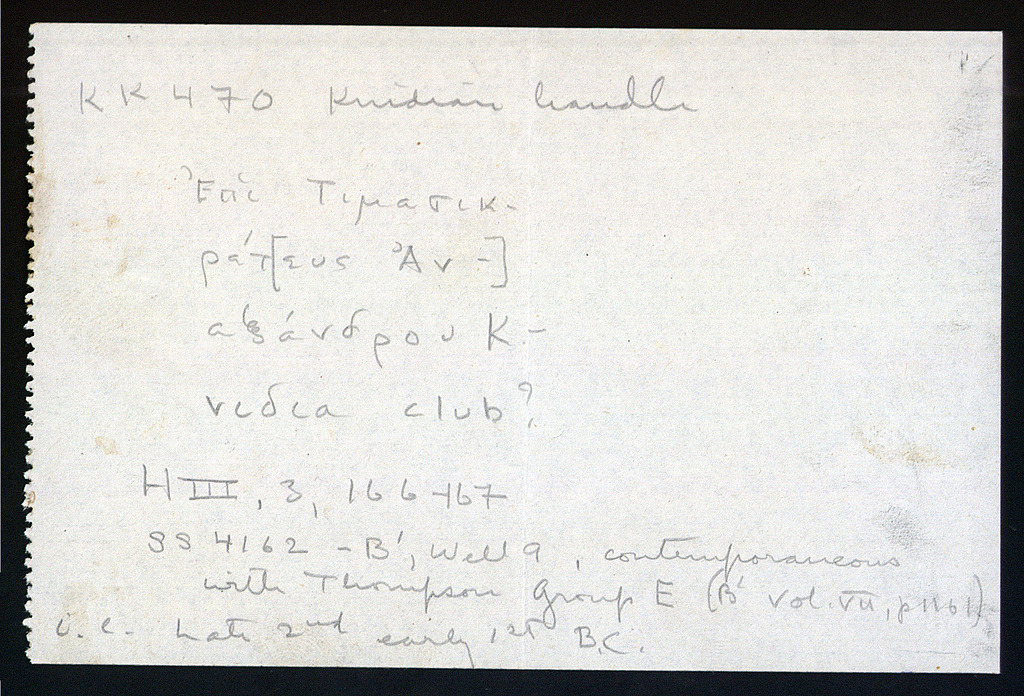 KK 470 Knidian handle
Ἐπὶ Τιματικ-
ράτ[ευς Ἀν-]
αξάνδρου Κ-
νιδια club?
H III, 3, 166-167
SS 4162 - B', Well 9, contemporaneous
with Thompson Group E (B' vol. VII, p1161)
i.e. Late 2nd early 1st B.C.